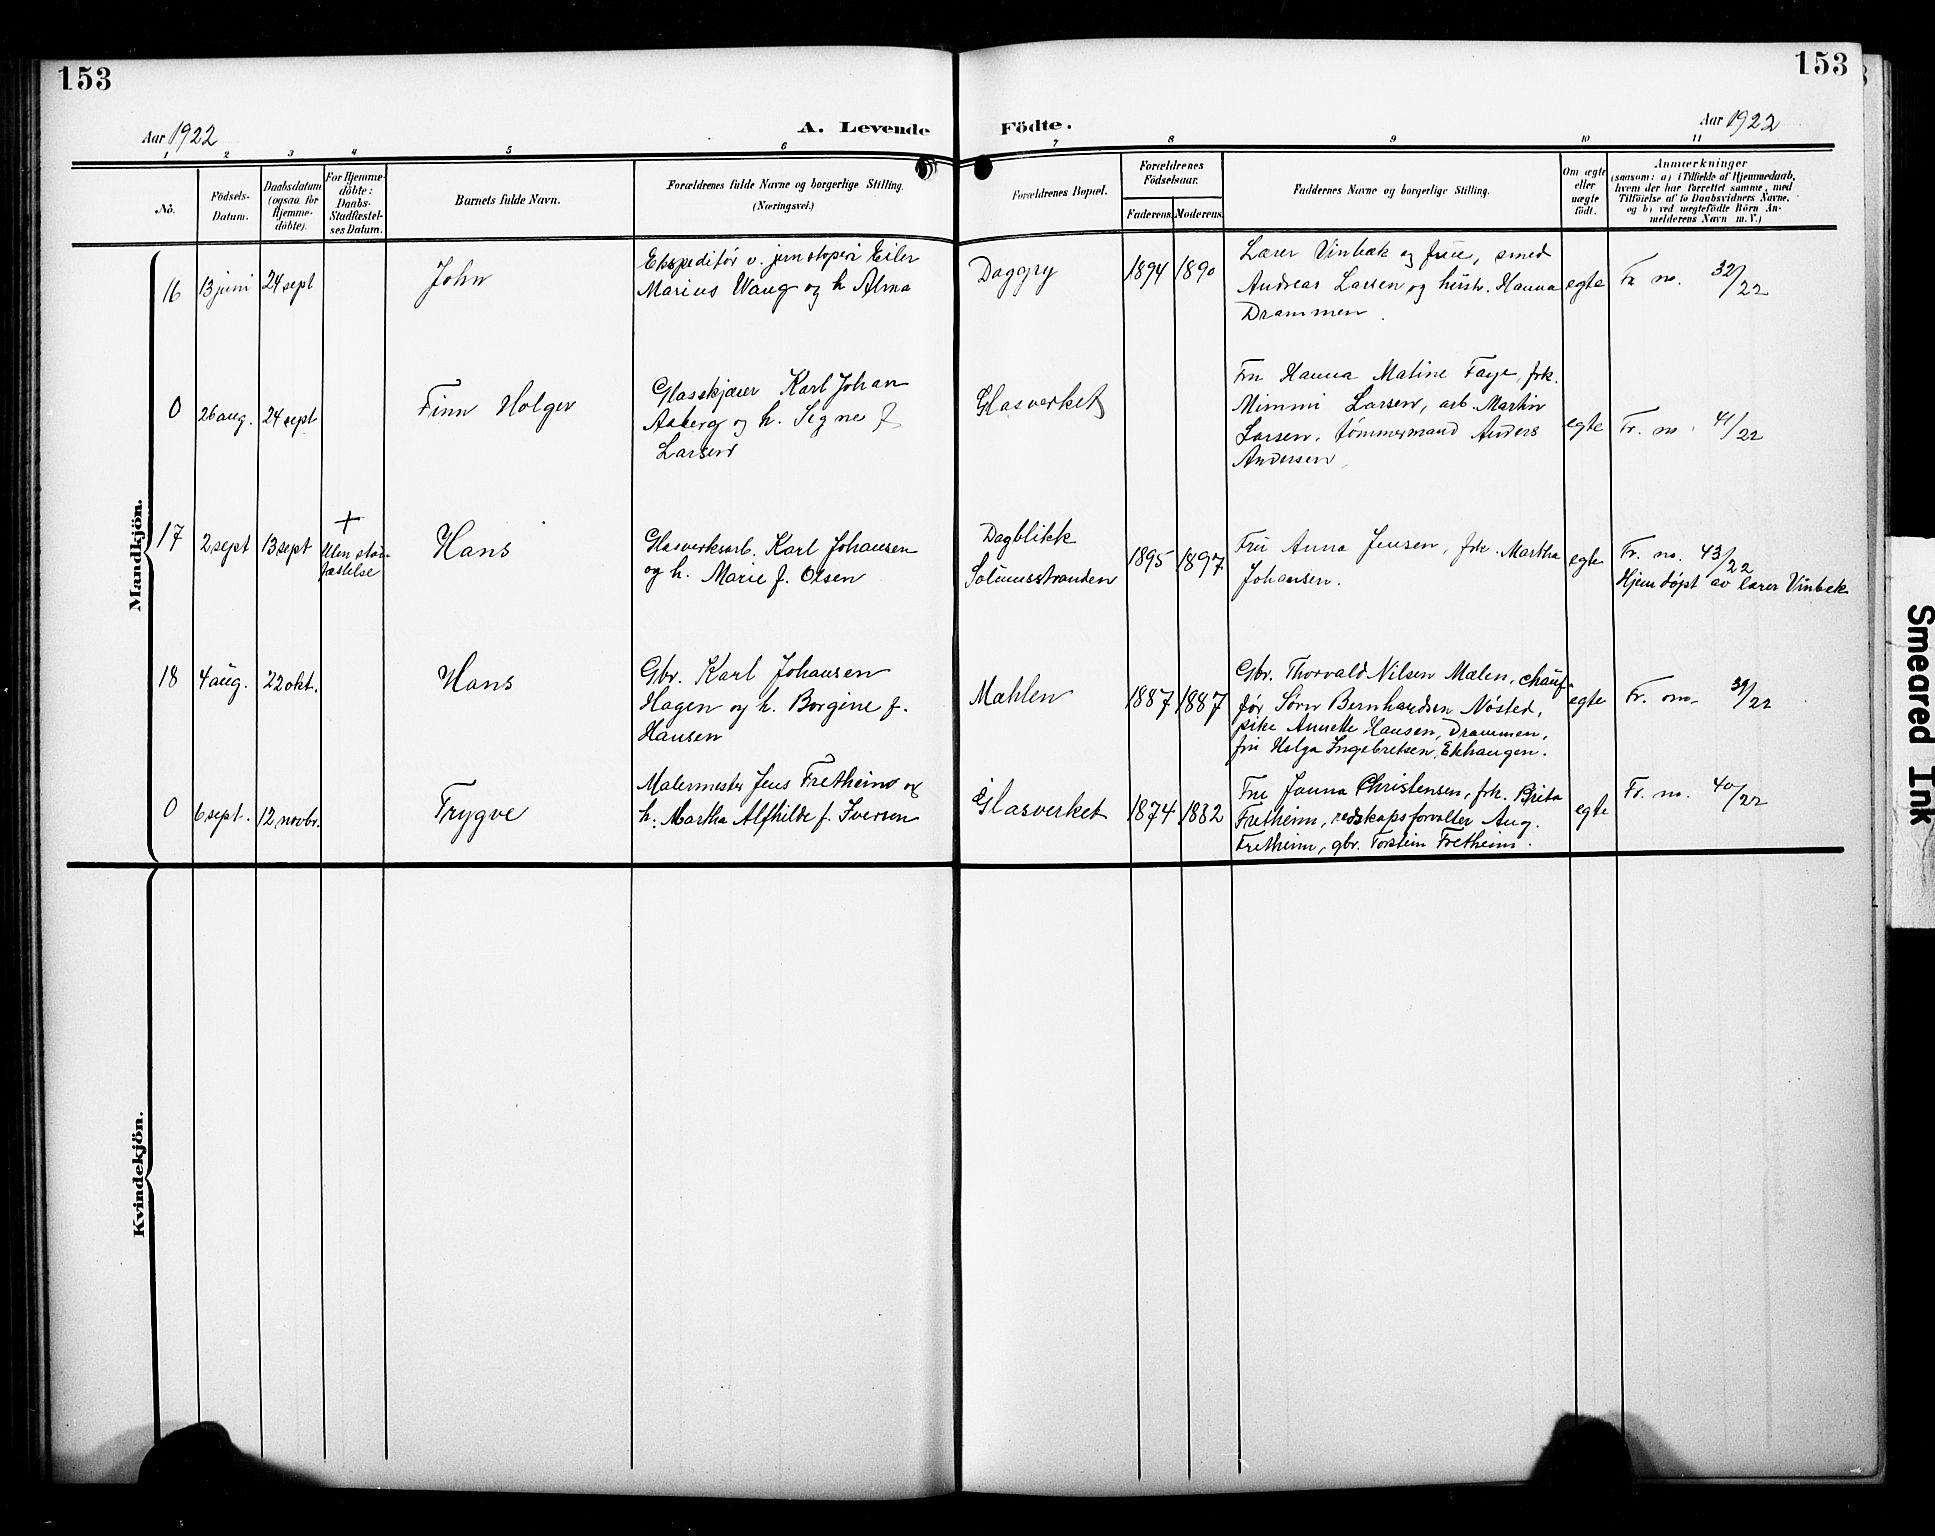 153
153
Aar 1922
A. Levende
Födte.
Aar 1922
1 2 3 4 5 6 7 8 9 10 11
No.
Födsels-
Datum.
Daabsdatum
(ogsaa for
Hjemme-
döbte).
For Hjemme-
döbte:
Daabs-
Stadfæstel-
ses Datum.
Barnets fulde Navn.
Forældrenes fulde Navne og borgerlige Stilling.
(Næringsvei.)
Forældrenes Bopæl.
Forældrenes
Födselsaar.
Faderens. Moderens.
Faddernes Navne og borgerlige Stilling.
Om ægte
eller
uægte
födt.
Anmærkninger
(saasom: a) i Tilfælde af Hjemmedaab,
hvem der har forrettet samme, med
Tilföielse af to Daabsvidners Navne,
og b) ved uægtefödte Börn An-
melderens Navn m. V.)
Mandkjön.
16 13 juni 24 sept
John
Ekspeditør v. jernstøperi Eiler
Marius Waug og h. Alma
Daggry
1894 1890
Lærer Vinbæk og frue, smed
Andreas Larsen og hustr. Hanna
Drammen.
egte
Fr. no. 32/22
0 26 aug. 24 sept
Finn Holger
Glasskjærer Karl Johan
Aaberg og h. Signe f.
Larsen
Glasverket
Fru Hanna Matine Faye, frk.
Mimmi Larsen, arb. Martin
Larsen, tømmermand Anders
Andersen.
egte
Fr. no. 41/22
17 2 sept 13 sept
+
Uten stad-
fæstelse
Hans
Glasverksarb. Karl Johansen
og h. Marie f. Olsen
Dagblikk
Solumsstranden
1895 1897
Fru Anna Jensen, frk. Martha
Johansen.
egte
Fr. no. 43/22
Hjemdøpt av lærer Vinbæk
18 4 aug. 22 okt.
Hans
Gbr. Karl Johansen
Hagen og h. Borgine f.
Hansen
Mahlen
1887 1887
Gbr. Thorvald Nilsen Malen, chauf-
før Sørn Bernhardsen Nøsted,
pike Annette Hansen, Drammen,
fru Helga Ingebretsen, Ekhaugen.
egte
Fr. no. 39/22
0 6 sept. 12 novbr.
Trygve
Malermester Jens Fretheim og
h. Martha Alfhilde f. Iversen
Glasverket
1874 1882
Fru Janna Christensen, frk. Brita
Fretheim, redskapsforvalter Aug.
Fretheim, gbr. Torstein Fretheim.
egte
Fr. no. 40/22
Kvindekjön.
Smeared Ink